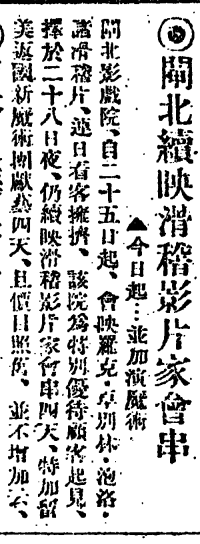 ◎閘北續映滑稽影片家會串
▲今日起…並加演魔術
閘北影戲院、自二十五日起、會映羅克·卓別林泡洛·
諸滑稽片、連日看客擁擠、該院為特別優待顧客起見、
擇於二十八日夜、仍續映滑稽影片家會串四天、特加留
美返國新魔術團獻藝四天、且價目照舊、並不增加云、